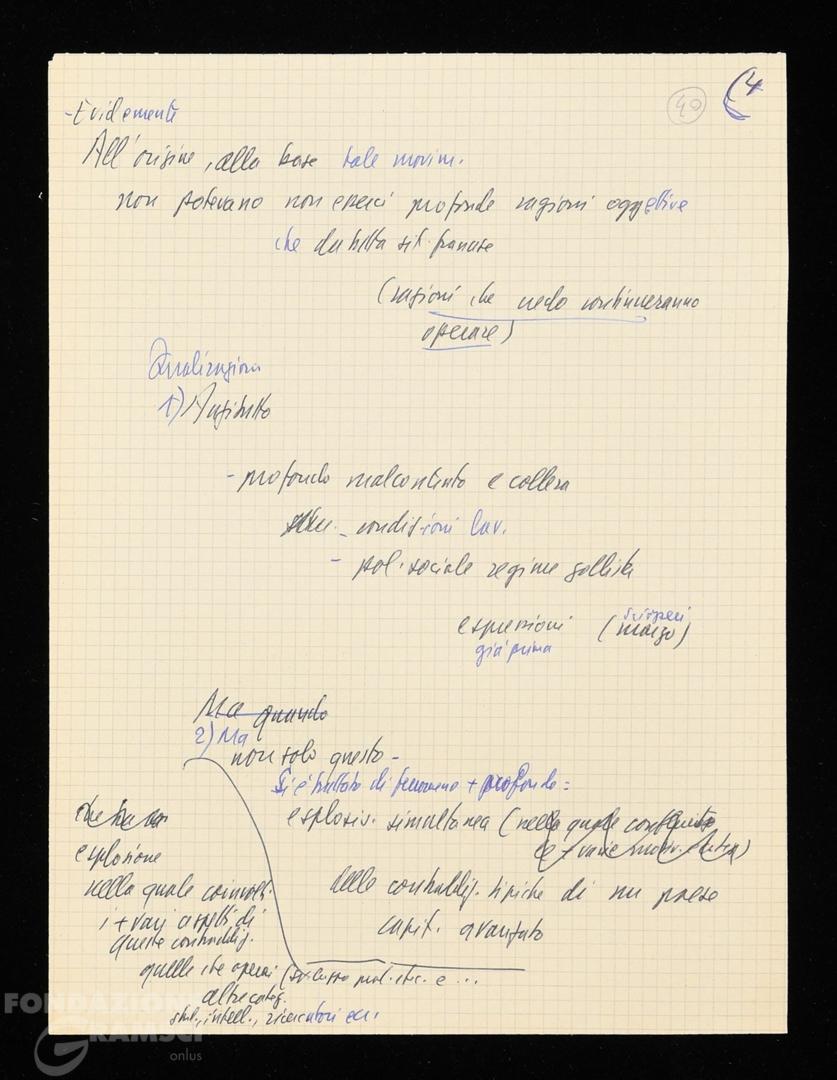 40
(4
- Evidemente
All'origine, alla base tale movim.
non potevano non esserci profonde ragioni oggettive
che da tutta sit. francese
(ragioni che credo continueranno
operare)
1) Anzitutto
- profondo malcontento e collera
- condizioni lav.
- pol. sociale regime gollista
espressioni (marzo)
scioperi
già prima
Ma quando
2) Ma
non solo questo -
Si è trattato di fenomeno + profondo =
esplosiv. simultanea (nella quale
e + varie
delle contraddiz. tipiche di un paese
capit. avanzato
esplosione
nella quale coinvolti
i + vari aspetti di
queste contraddiz.
quelle che operai (sviluppo prod. etc. e ...
altre categ.
stud., intell., ricercatori ecc.
FONDAZIONE
GRAMSCI
onlus